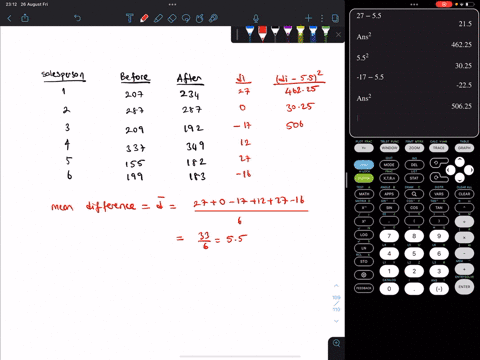 23:12 26 August Fri
27 - 5.5
21.5
Ans²
462.25
5.5²
30.25
-17 - 5.5
-22.5
Ans²
506.25
salesperson Before After di (di - 5.5)²
1 207 234 27 462.25
2 287 287 0 30.25
3 209 192 -17 506
4 337 349 12
5 155 182 27
6 199 183 -16
mean difference = d̄ = 27+0-17+12+27-16
6
= 33/6 = 5.5
WINDOW ZOOM TRACE GRAPH
MODE DEL
X,T,θ,n STAT
MATH APPS PRGM VARS CLEAR
SIN COS TAN ^
, ( ) ÷
LOG 7 8 9 ×
LN 4 5 6 -
STO 1 2 3 +
0 . (-)